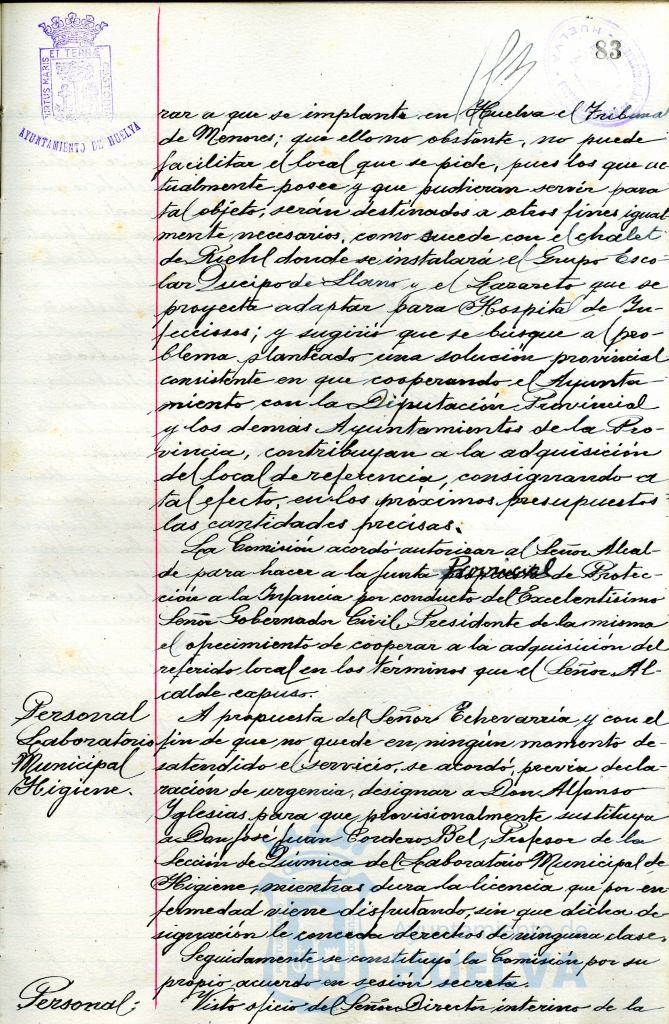 83
VIRTUS MARIS
ET TERRÆ
CUSTODIA
AYUNTAMIENTO DE HUELVA
HUELVA
rar a que se implante en Huelva el Tribunal
de Menores; que ello no obstante, no puede
facilitar el local que se pide, pues los que ac
tualmente posee y que pudieran servir para
tal objeto, serán destinados a otros fines igual
mente necesarios, como sucede con el chalet
de Riehl donde se instalará el Grupo Esco
lar Queipo de Llano y el Lazareto que se
proyecta adaptar para Hospital de In-
fecciosos; y sugirió que se busque al pro-
blema planteado una solución provincial
consistente en que cooperando el Ayunta-
miento con la Diputación Provincial
y los demás Ayuntamientos de la Pro-
vincia, contribuyan a la adquisición
del local de referencia, consignando a
tal efecto, en los próximos presupuestos
las cantidades precisas.
La Comisión acordó autorizar al Señor Alcal-
de para hacer a la Junta Provincial de Protec-
ción a la Infancia por conducto del Excelentísimo
Señor Gobernador Civil, Presidente de la misma
el ofrecimiento de cooperar a la adquisición del
referido local en los términos que el Señor Al-
calde expuso.
Personal
Laboratorio
Municipal
Higiene.
A propuesta del Señor Echevarría y con el
fin de que no quede en ningún momento de-
satendido el servicio, se acordó, previa decla-
ración de urgencia, designar a Don Alfonso
Yglesias para que provisionalmente sustituya
a Don José Juan Cordero Bel, Profesor de la
Sección de Química del Laboratorio Municipal de
Higiene, mientras dura la licencia que por en
fermedad viene disfrutando, sin que dicha de-
signación le conceda derechos de ninguna clase.
Seguidamente se constituyó la Comisión por su
propio acuerdo en sesión secreta.
Personal:
Visto oficio del Señor Director interino de la
Ayuntamiento de
HUELVA